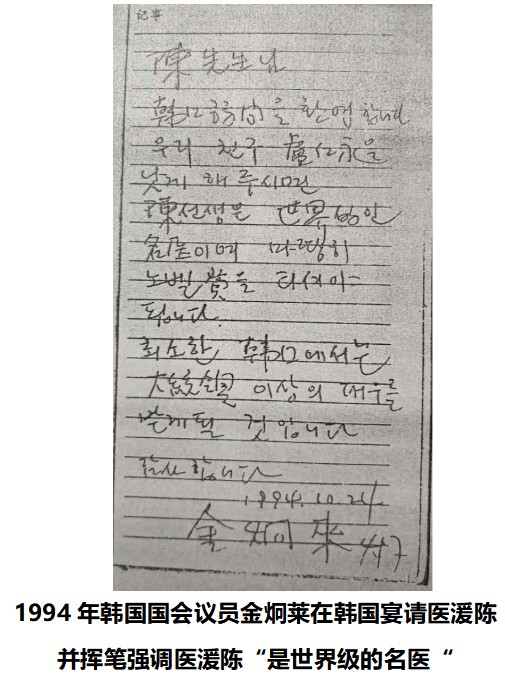 記事
陳 先生님
韓国訪问을 환영합니다
우리 친구 盧仁永을
낫게 해 주시면
陳선생은 世界的인
名医이며 마땅히
노벨賞을 타셔야
됩니다.
최소한 韓国에서는
大統領 이상의 대우를
받게될 것입니다
감사합니다
1994.10.24
金炯来
1994年韩国国会议员金炯莱在韩国宴请医湲陈
并挥笔强调医湲陈“是世界级的名医“